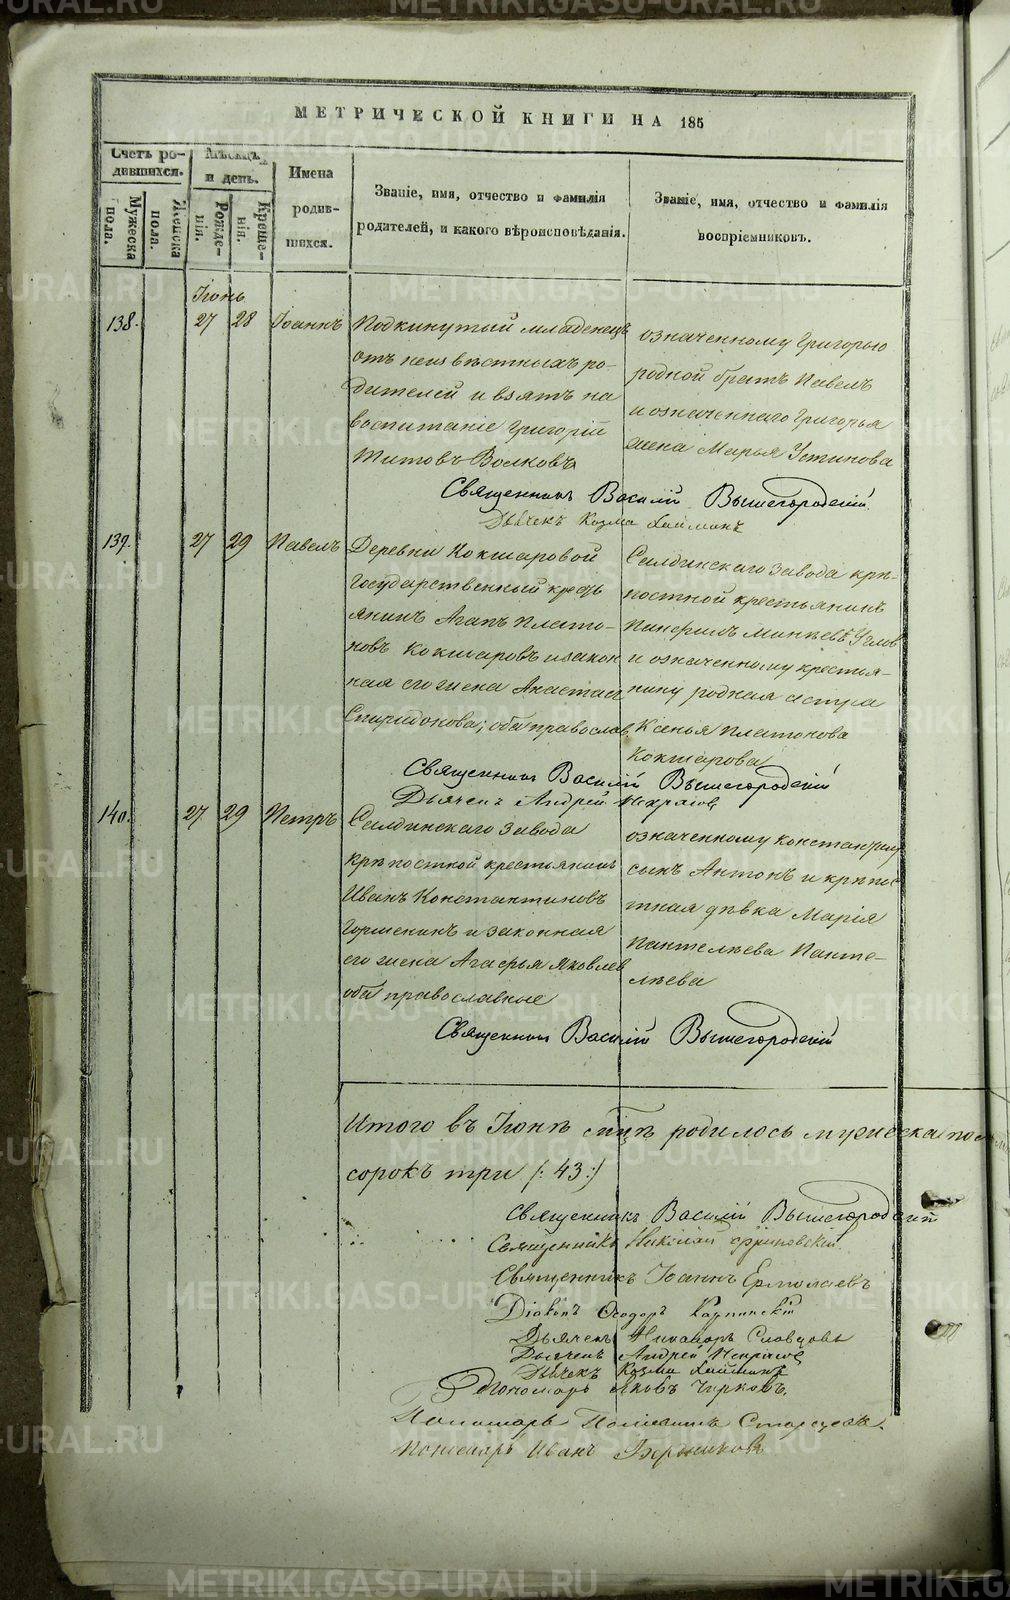 МЕТРИЧЕСКОЙ КНИГИ НА 185
Счетъ ро-
дившихся.
Мѣсяцъ
и день.
Имена
родив-
шихся.
Званіе, имя, отчество и фамилія
родителей, и какого вѣроисповѣданія.
Званіе, имя, отчество и фамилія
воспріемниковъ.
Мужеска
пола.
Женска
пола.
Рожде-
нія.
Креще-
нія.
Іюнь
138. 27 28 Іоаннъ
Подкинутый младенецъ
отъ неизвѣстныхъ ро-
дителей и взятъ на
воспитаніе Григорій
Титовъ Волковъ
означенному Григорью
родной братъ Павелъ
и означеннаго Григорья
жена Марья Устинова
Священникъ Василій Вышегородскій
Дьячекъ Козма
139. 27 29 Павелъ
Деревни Кокшаровой
Государственный кресть
янинъ Агапъ Плато-
новъ Кокшаровъ и закон
ная его жена Анастасія
Спиридонова; оба православ.
Салдинскаго завода крѣ-
постной крестьянинъ
Панфилъ Минѣевъ Угловъ
и означенному крестья-
нину родная сестра
Ксенья Платонова
Кокшарова
Священникъ Василій Вышегородскій
Дьячекъ Андрей Некрасов
140. 27 29 Петръ
Салдинскаго завода
крѣпостной крестьянинъ
Иванъ Константиновъ
и законная
его жена Агафья Яковлев
оба православные
означенному Константину
сынъ Антонъ и крѣпос
тная дѣвка Марія
Пантелѣева Панте-
лѣева
Священникъ Василій Вышегородскій
Итого въ Іюнѣ мцѣ родилось мужеска пола
сорокъ три (: 43 :)
Священникъ Василій Вышегородскій
Священникъ Николай
Священникъ Іоаннъ Ермолаевъ
Діаконъ Ѳеодоръ Карпинскій
Дьячекъ Никаноръ Словцовъ
Дьячекъ Андрей Некрасов
Дьячекъ Козма
Пономарь Яковъ Чирковъ.
Пономарь
Пономарь Иванъ Бердниковъ
METRIKI.GASO-URAL.RU